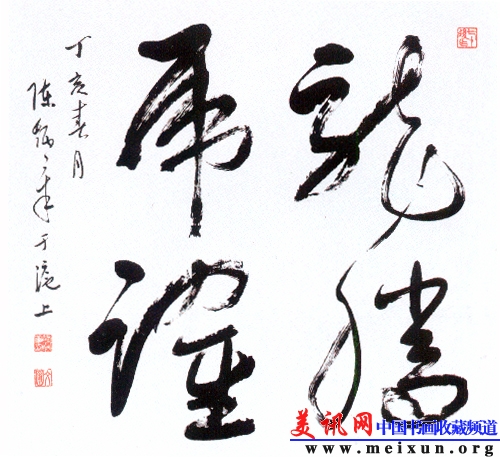 龍騰
虎躍
丁亥春月
陈 于滬上
美讯网 中国书画收藏频道
www.meixun.org